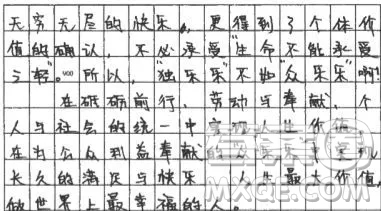 无穷无尽的快乐。更得到了个体价
值的确认，不必承受"生命不能承受
之轻"。900所以，"独乐乐"不如"众乐乐"啊！
在砥砺前行、劳动与奉献、个
人与社会的统一中实现人生价值，
在为公众利益奉献的
长久的满足与快乐，人生最大价值，
做世界上最幸福的人。